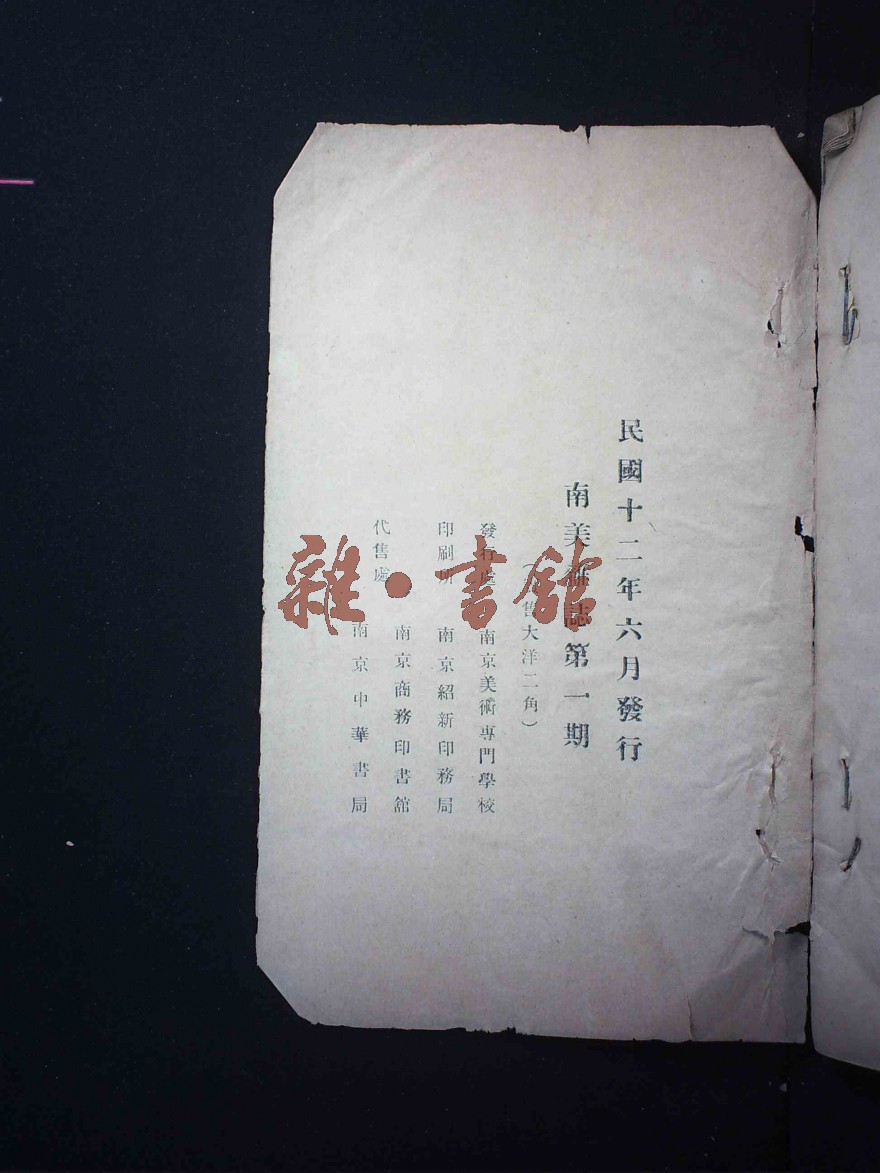 民國十二年六月發行
南美雜誌第一期
售大洋二角）
發行處 南京美術專門學校
印刷所 南京紹新印務局
代售處 南京商務印書館
南京中華書局
雜·書館